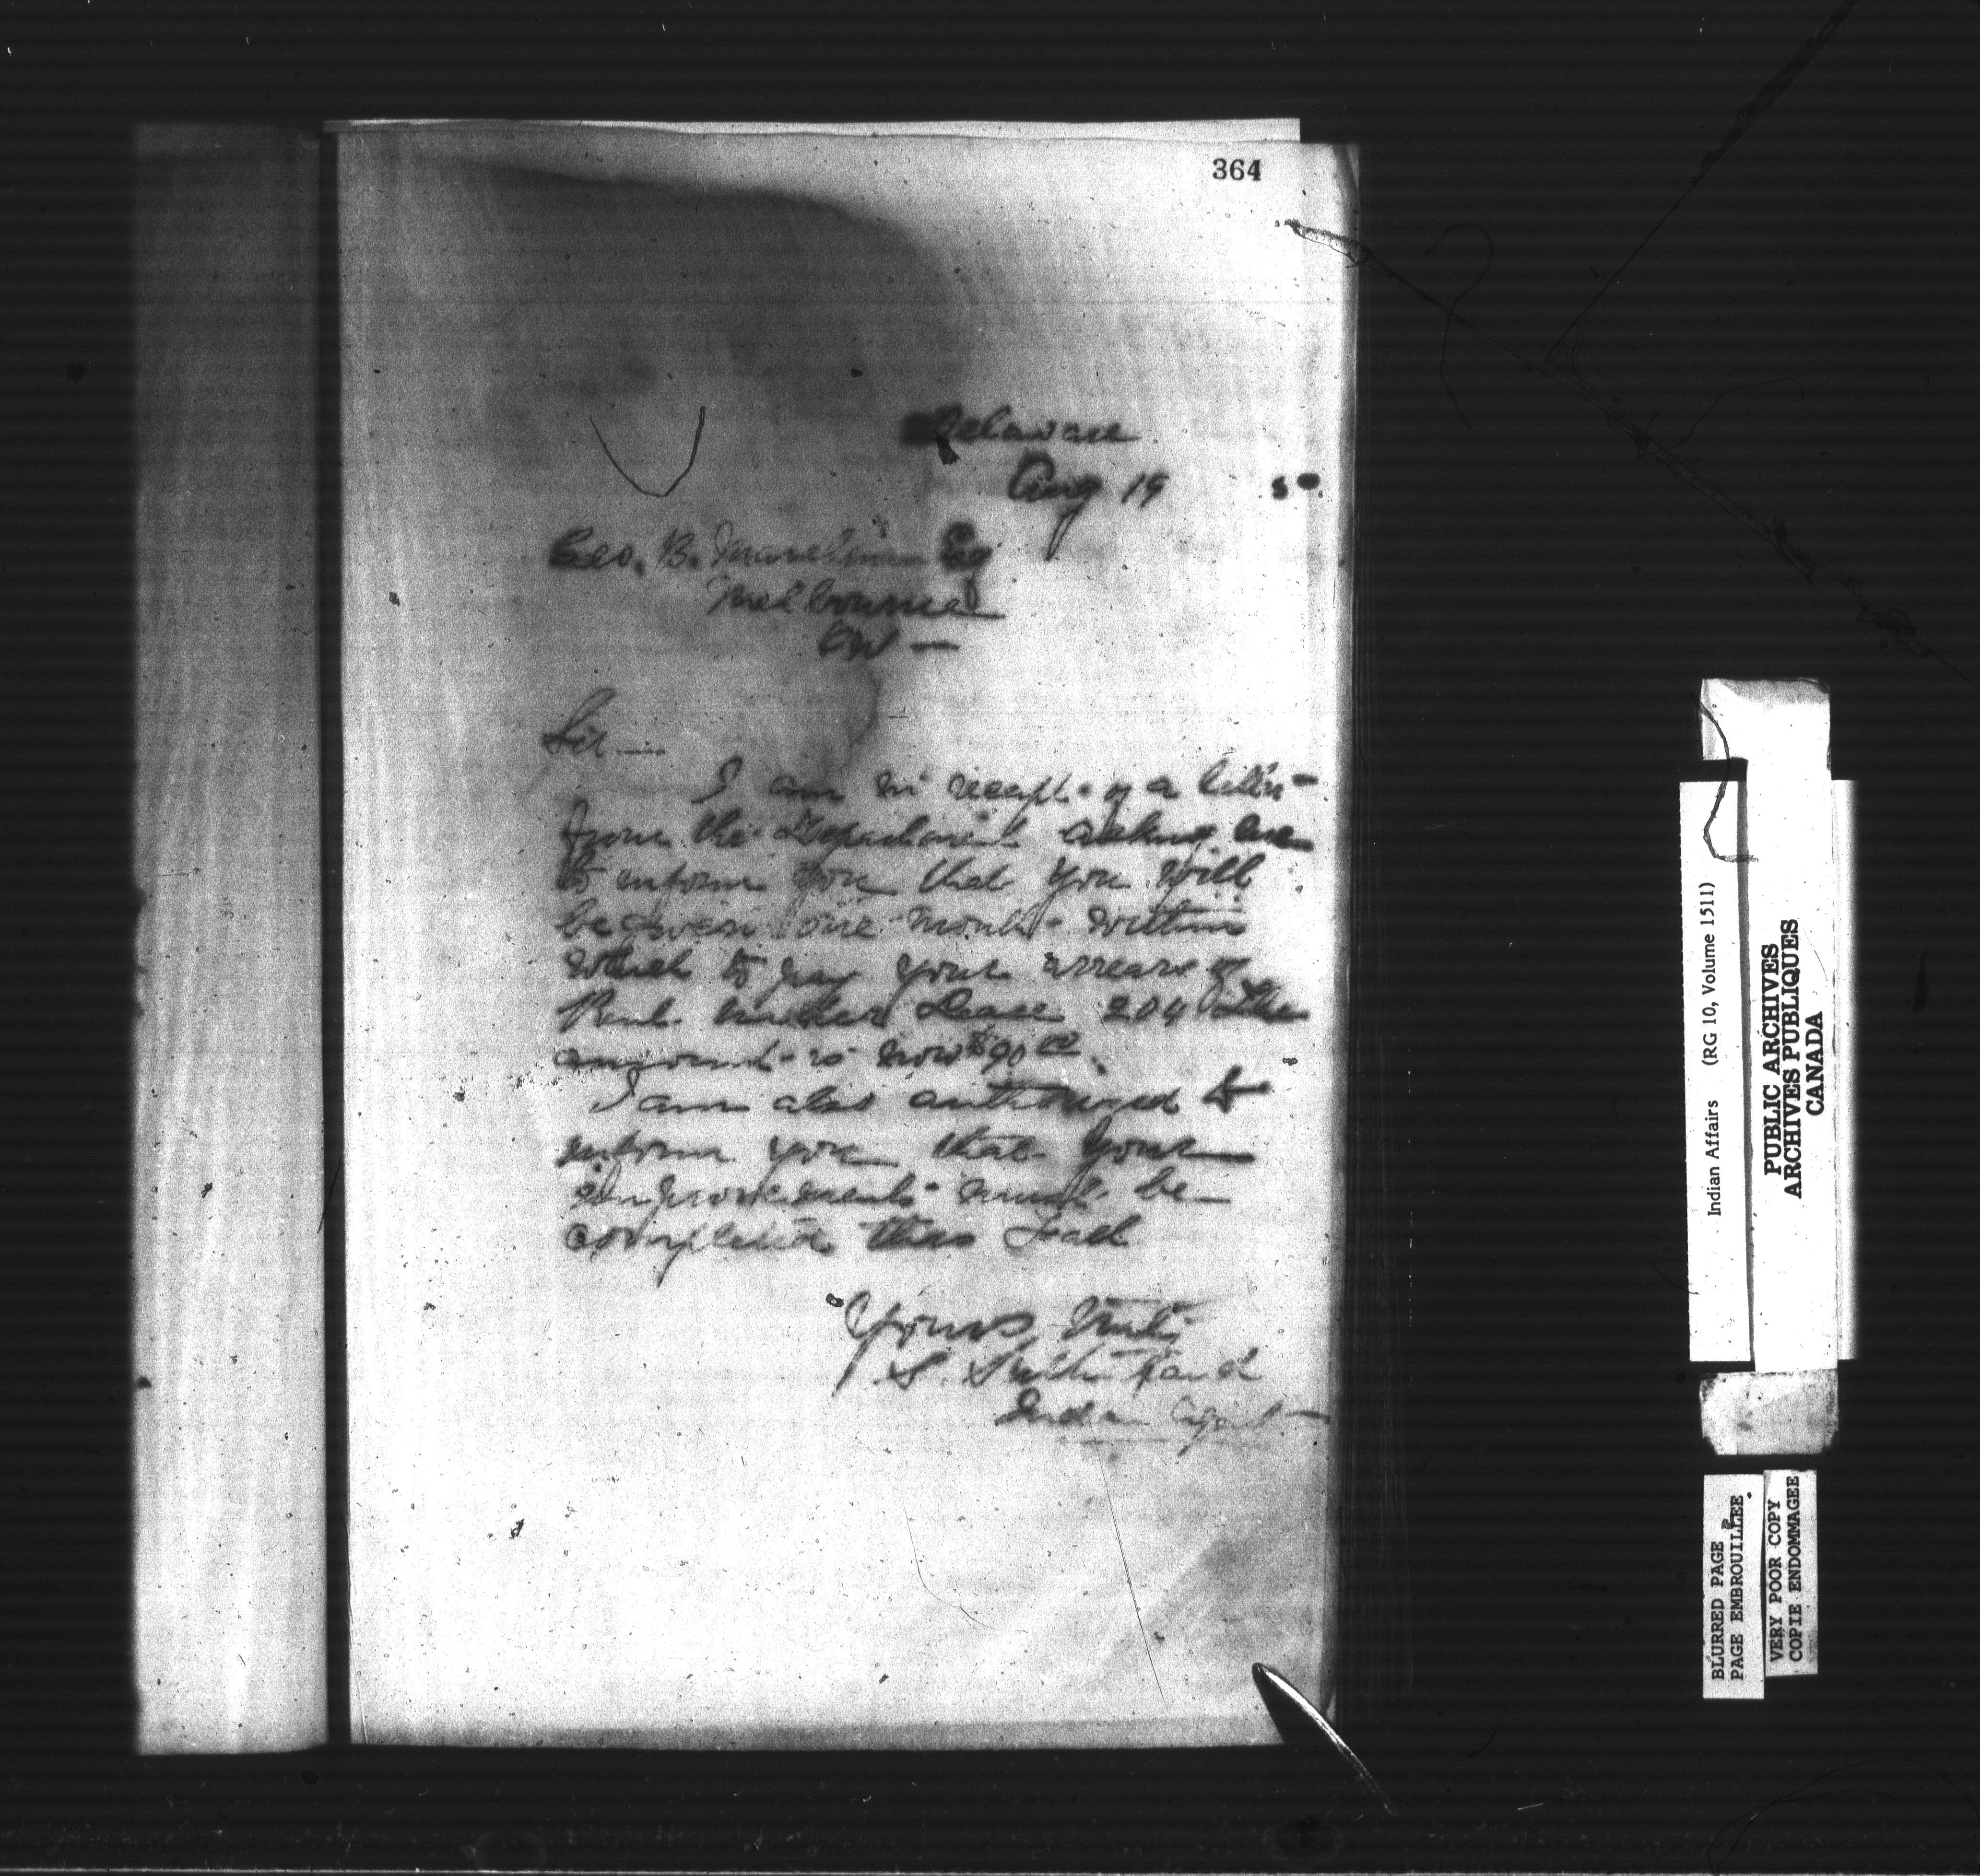 364
Delaware
Aug 19
Geo. B. Esq
Melbourne
Ont —
Sir —
I am in receipt of a letter
from the Department asking me
to inform you that you will
be given one month within
which to pay your arrears of
Rent under Lease 204 the
amount is now $90
I am also authorized to
inform you that your
improvements must be
completed this Fall
Yours Truly
S. Sutherland
Indian Agent
Indian Affairs (RG 10, Volume 1511)
PUBLIC ARCHIVES
ARCHIVES PUBLIQUES
CANADA
BLURRED PAGE
PAGE EMBROUILLEE
VERY POOR COPY
COPIE ENDOMMAGEE